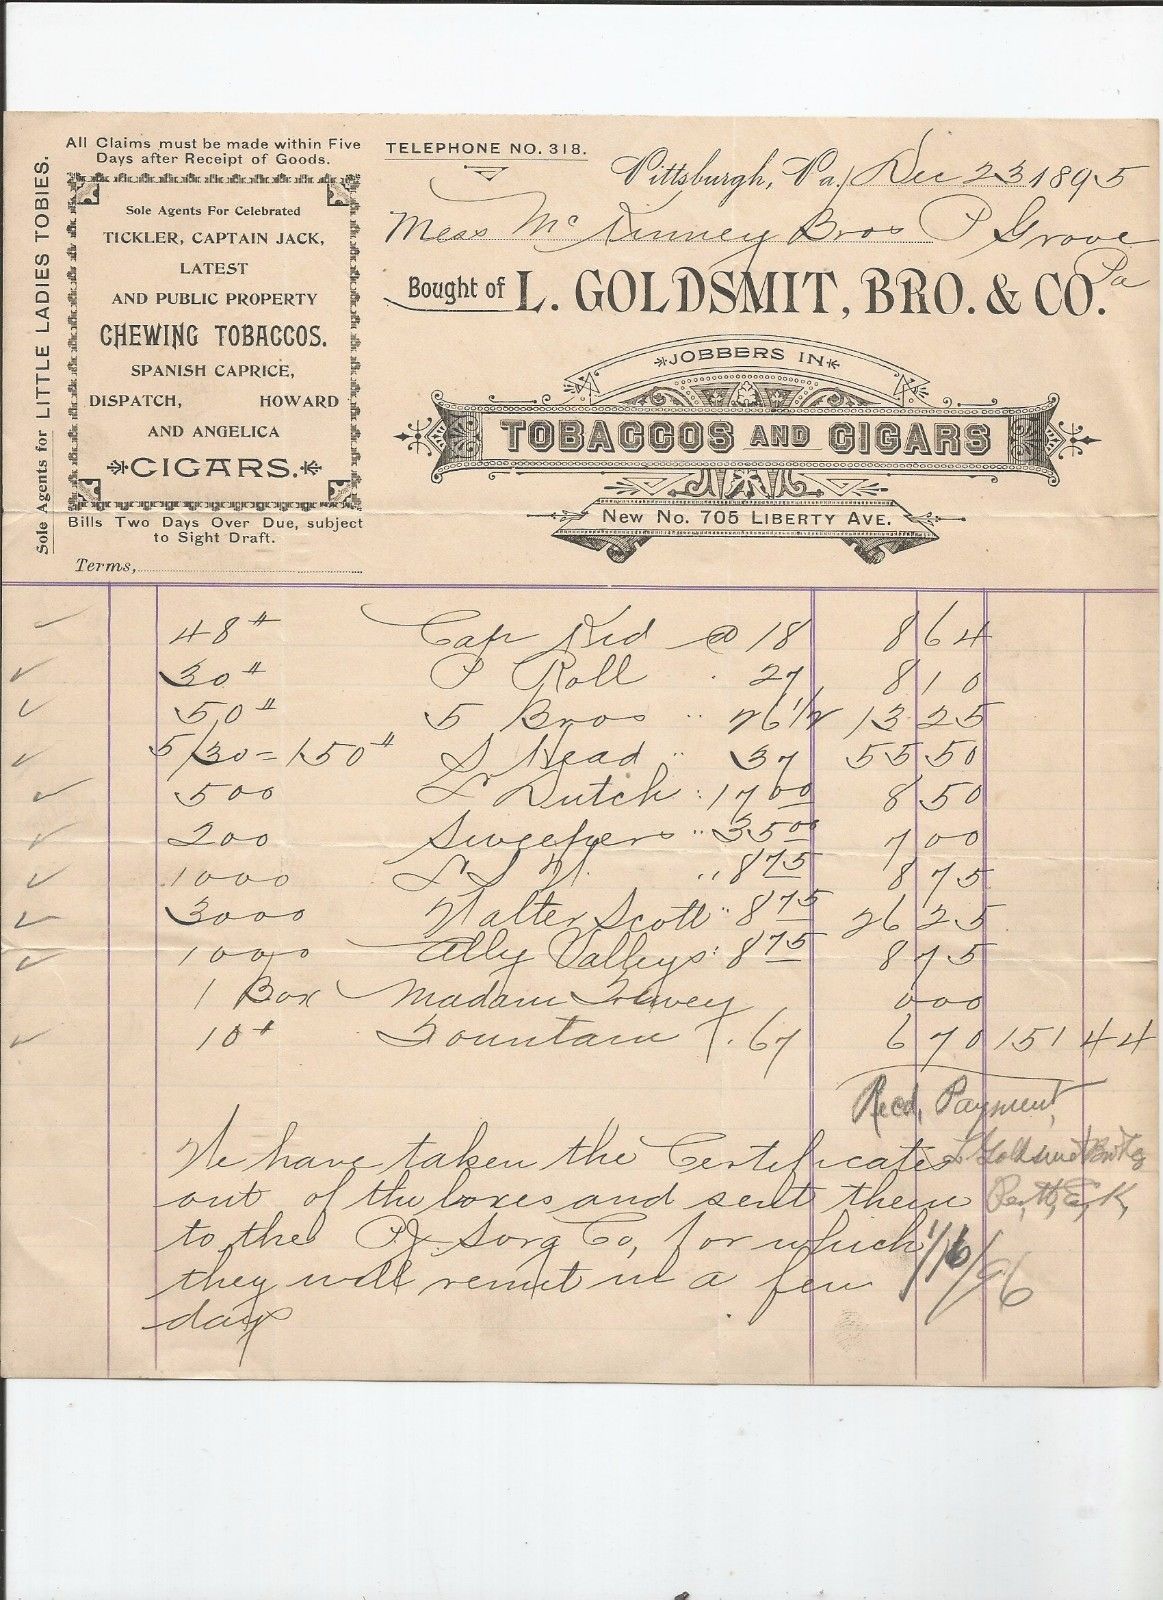 Sole Agents for LITTLE LADIES TOBIES.
All Claims must be made within Five
Days after Receipt of Goods.
Sole Agents For Celebrated
TICKLER, CAPTAIN JACK,
LATEST
AND PUBLIC PROPERTY
CHEWING TOBACCOS.
SPANISH CAPRICE,
DISPATCH, HOWARD
AND ANGELICA
CIGARS.
Bills Two Days Over Due, subject
to Sight Draft.
Terms,
TELEPHONE NO. 318.
Pittsburgh, Pa., Dec 23 1895
Mess McKinney Bros P Grove
Pa
Bought of L. GOLDSMIT, BRO. & CO.
JOBBERS IN
TOBACCOS AND CIGARS
New No. 705 LIBERTY AVE.
48# Cap Kid @ 18 8 64
30# P Roll . 27 8 10
50# 5 Bros " 26 1/2 13 25
5/30 = 150# S Head " 37 55 50
500 Dutch : 17 00 8 50
200 Sweepers " 35 00 7 00
1000 " 8 75 8 75
3000 Walter Scott " 8 75 26 25
1000 Ally Valleys : 8 75 8 75
1 Box Madam 000
10# Fountain . 67 6 70 151 44
Recd. Payment,
L Goldsmit Bro & Co
Per
1/16/96
We have taken the Certificates
out of the boxes and sent them
to the P J Sorg Co, for which
they will remit in a few
days